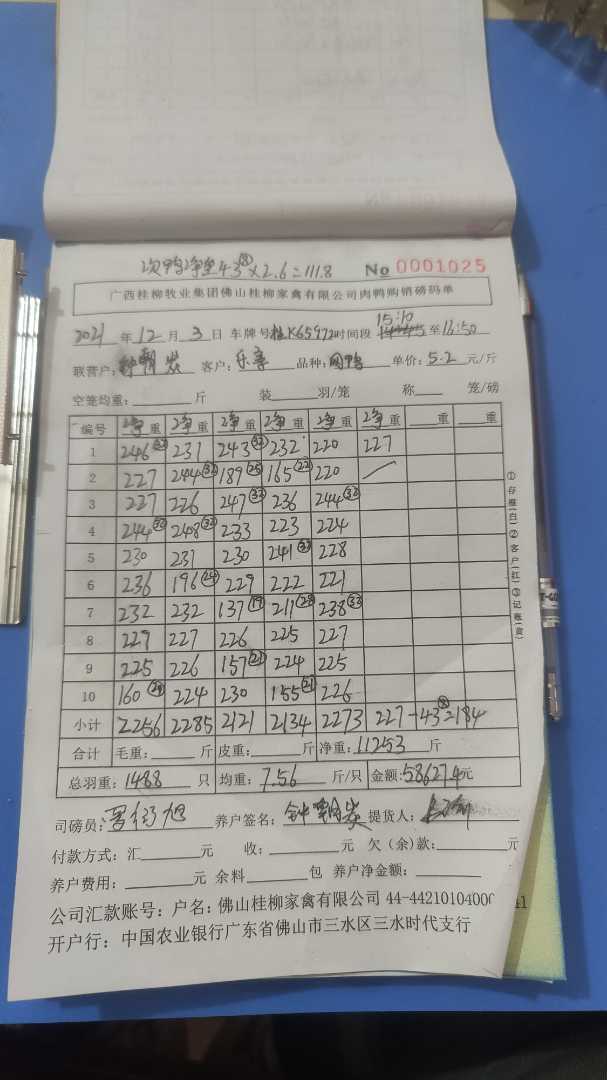 次鸭净重43⑧×2.6=111.8 No 0001025
广西桂柳牧业集团佛山桂柳家禽有限公司肉鸭购销磅码单
2021年12月3日 车牌号桂K65972时间段 15:10至16:50
联营户: 客户:乐享 品种: 单价:5.2元/斤
空笼均重:斤 装羽/笼 称笼/磅
编号 净重 净重 净重 净重 净重 净重 重 重
1 246㉜ 231 243㉜ 232 220 227
2 227 244㉜ 189㉕ 165㉒ 220
3 227 226 247㉜ 236 244㉜
4 244㉜ 248㉜ 233 223 224
5 230 231 230 241㉜ 228
6 236 196㉔ 229 222 221
7 232 232 137⑲ 211㉘ 238㉜
8 229 227 226 225 227
9 225 226 157㉑ 224 225
10 160 224 230 155㉑ 226
小计 2256 2285 2121 2134 2273 227-43⑧=184
合计 毛重:斤 皮重:斤 净重:11253斤
总羽重:1488只 均重:7.56斤/只 金额:58627.4元
司磅员: 养户签名: 提货人:
付款方式:汇元 收:元 欠(余)款:元
养户费用:元 余料包 养户净金额:
公司汇款账号:户名:佛山桂柳家禽有限公司 44-44210104000
开户行:中国农业银行广东省佛山市三水区三水时代支行
①存根(白)②客户(红)③记账(黄)